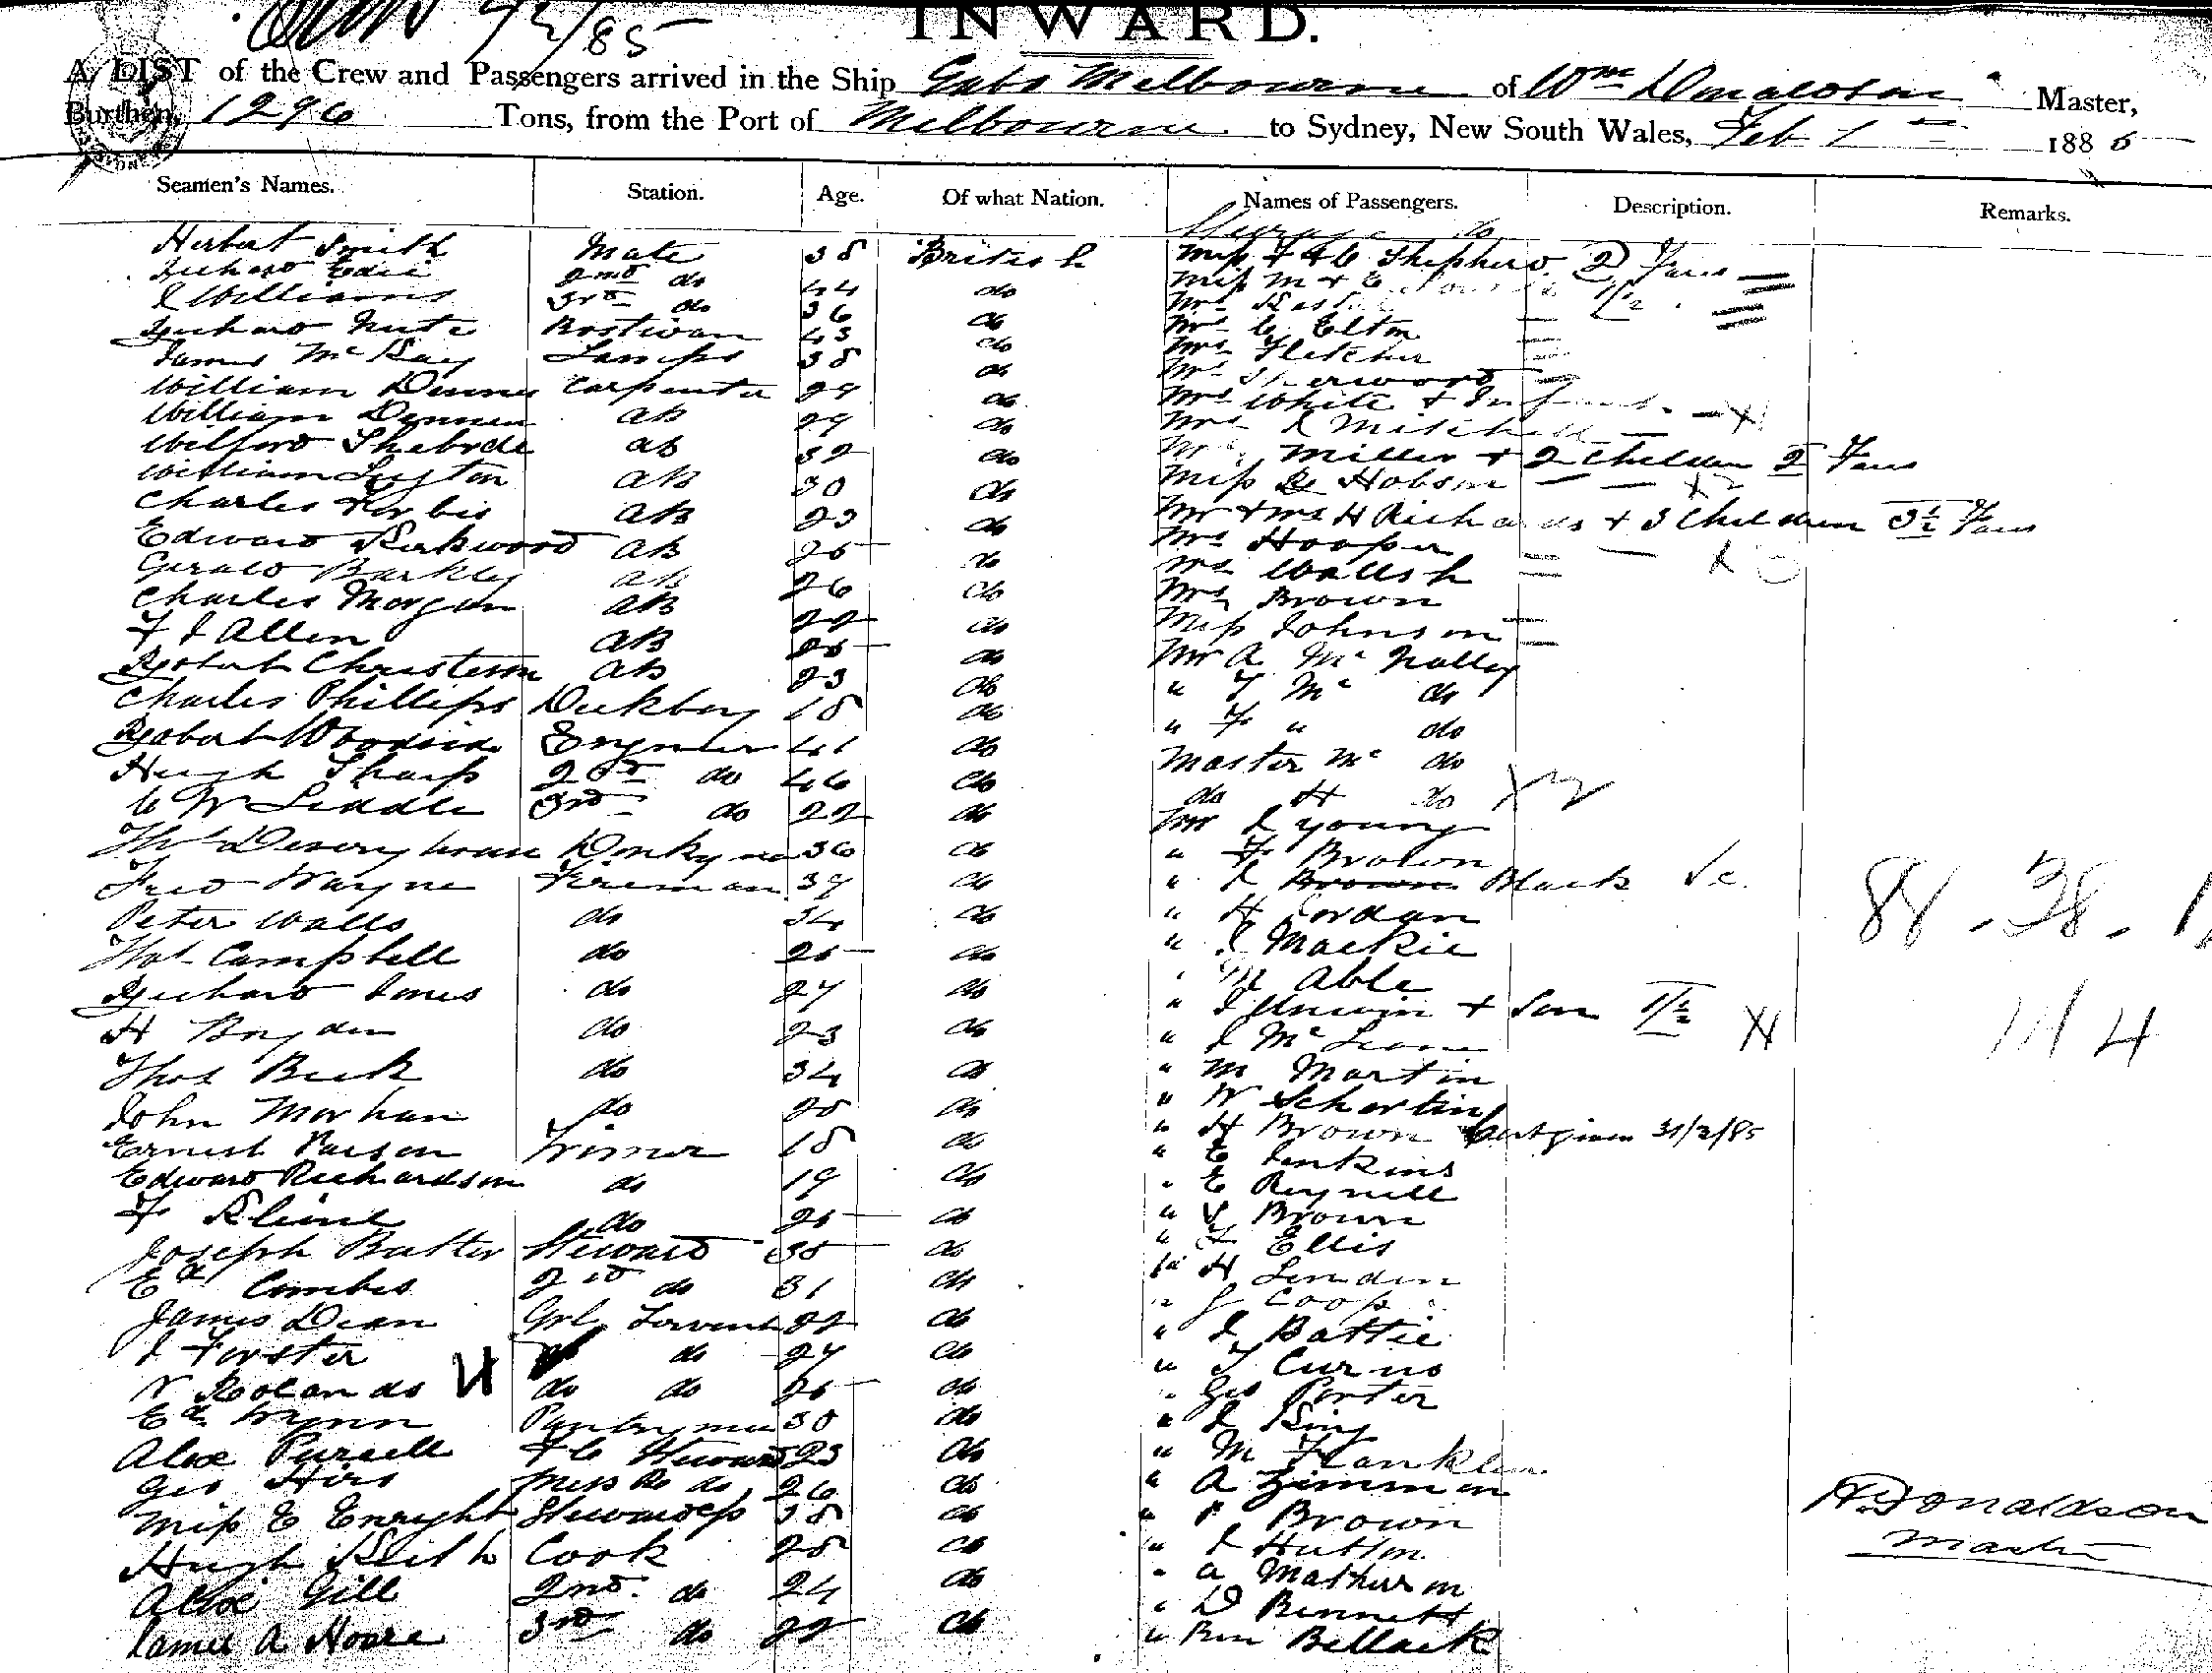 92/85
INWARD.
A LIST of the Crew and Passengers arrived in the Ship Gabo Melbourne of Wm Donaldson Master,
Burthen, 1296 Tons, from the Port of Melbourne to Sydney, New South Wales, Feb 1 1885
Seamen's Names. Station. Age. Of what Nation. Names of Passengers. Description. Remarks.
Steerage do
Herbert Smith Mate 38 British Miss F & C Shepherd 2 Fares
Richard Edie 2nd do 44 do Miss M & E 1 1/2
J Williams 3rd do 36 do Mrs
Richard Nute Bostwan 43 do Mrs C Elton
James McKay Lamps 38 do Mrs Fletcher
William Carpenter 29 do Mrs Sherwood
William Dennen AB 29 do Mrs White & Infant
Welford AB 32 do Mrs J Mitchell
William AB 30 do Mrs Miller & 2 Children 2 Fares
Charles AB 23 do Miss Hobson
Edward Kirkwood AB 25 do Mr & Mrs H Richards & 3 Children 3 1/2 Fares
Gerald Barkley AB 26 do Mrs Hooper
Charles Morgan AB 22 do Mrs Wallsh
F J Allen AB 25 do Mrs Brown
Robert Christerson AB 23 do Miss Johnson
Charles Phillips Deckboy 18 do Mr A McNalley
Robert Woodside Engineer 41 do " T Mc do
Hugh Sharp 2nd do 46 do " F " do
C W Liddle 3rd do 22 do Master Mc do
do H do
Mr J Young
Thos Donkyman 36 do " F Brown
Fred Wayne Fireman 39 do " J Brown Black
Peter Walls do 34 do " H Jordan
Thos Campbell do 25 do " J Mackie
Richard Jones do 27 do " M Able
H Bryden do 23 do " J Unwin & Son 1 1/2
Thos Buck do 34 do " J McLean
John Morhan do 28 do " M Martin
Ernest Parson Trimer 18 do " W Schertin
Edward Richardson do 19 do " H Brown Cert given 31/3/85
F Kline do 25 do " E Jenkins
Joseph Butter Steward 35 do " E Reynell
Ed Combes 2nd do 31 do " J Brown
James Dean Grl Servent 22 do " F Ellis
J Forster do do 27 do " H Linden
N Rolands do do 25 do " J Coop
Ed Wynn Pantryman 30 do " J Battie
Alex Purcell F C Steward 23 do " T Curno
Geo Hird Mess Ro do 26 do " Geo Porter
Miss E Enright Stewardess 38 do " J King
Hugh Keith Cook 28 do " M Franklin
Alex Gill 2nd do 24 do " A Zimmon
James A Hoare 3rd do 22 do " P Brown
" J Hutton
" A Mathieson
" D Bennett
" Ben Bellack
88.38.1
114
W Donaldson
Master